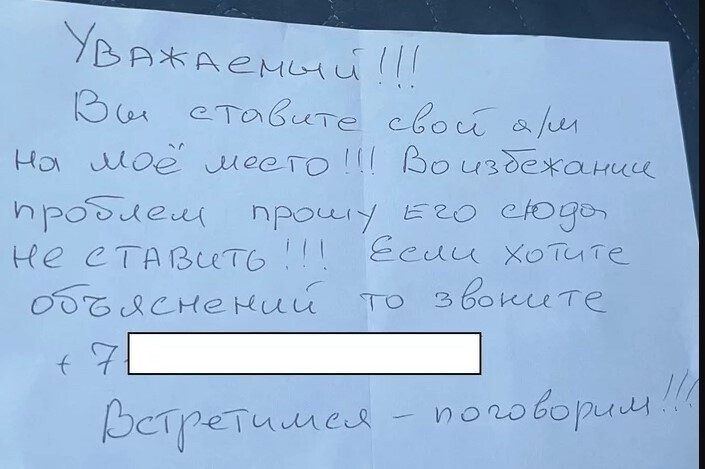 Уважаемый!!!
Вы ставите свой а/м
на моё место!!! Во избежании
проблем прошу его сюда
не ставить!!! Если хотите
объяснений то звоните
+7-
Встретимся - поговорим!!!